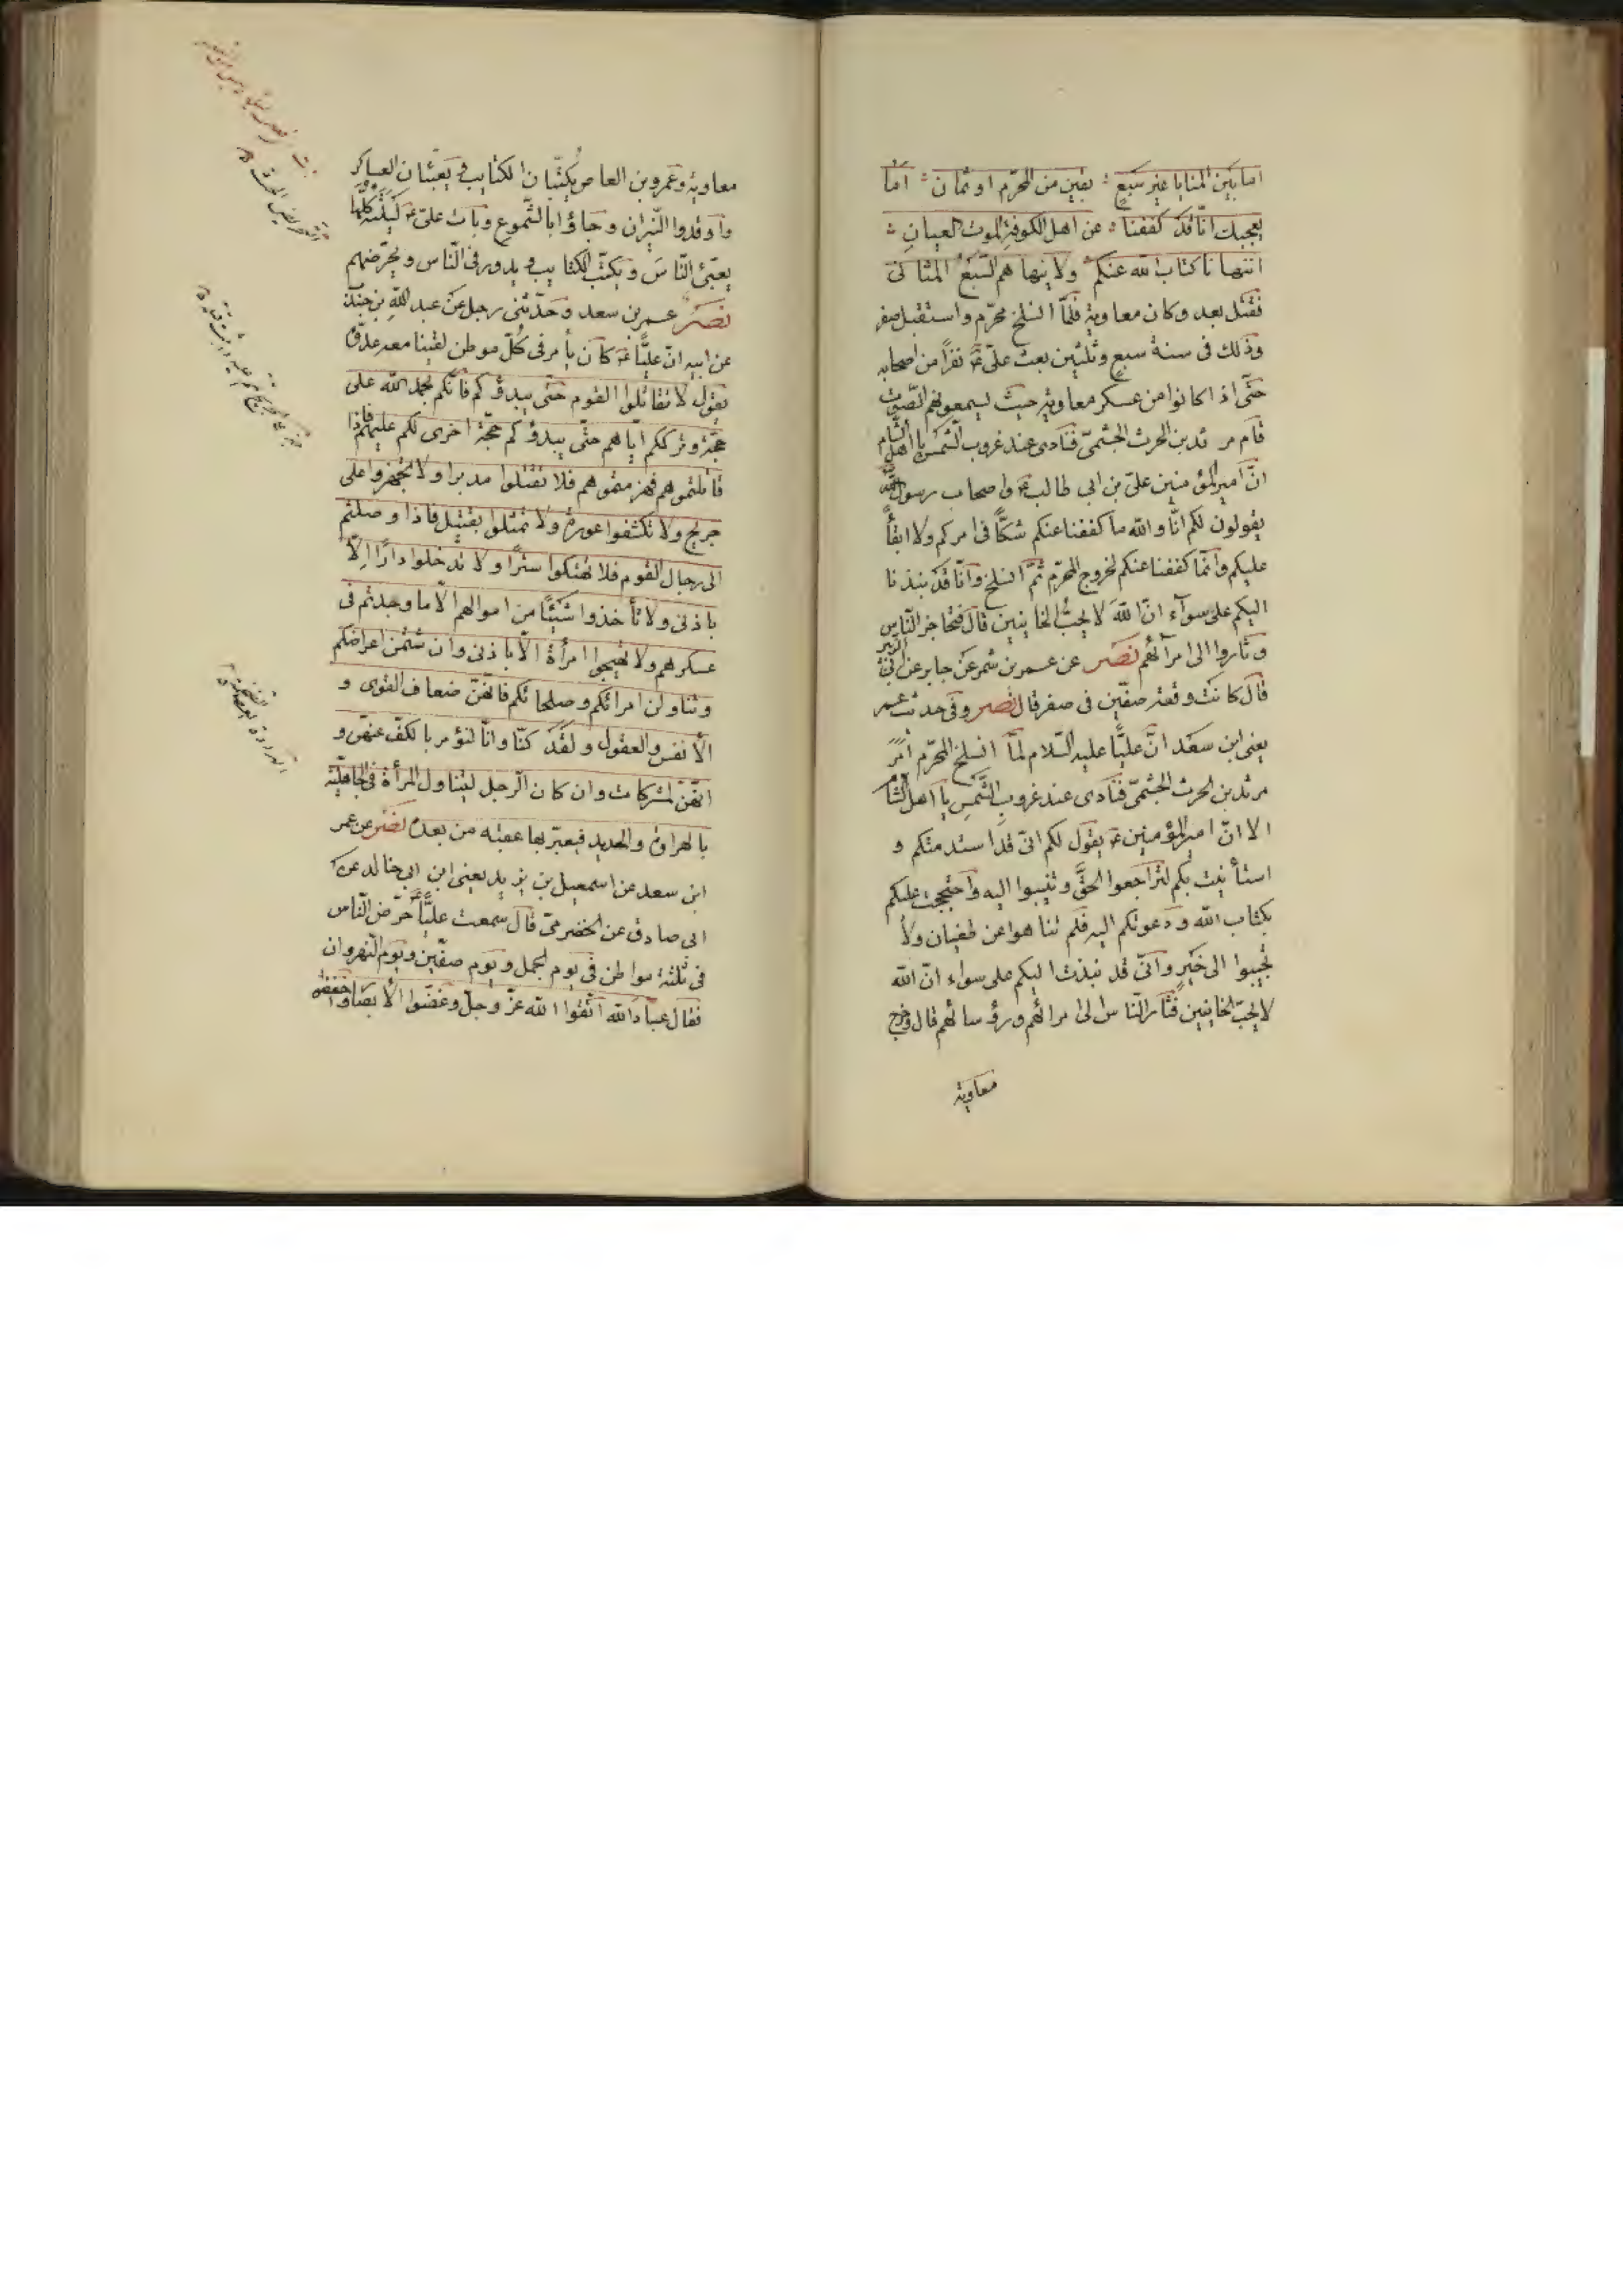 اما بين المنايا غير سبع ؛ بقين من المحرّم او ثمان ؛ اما
يعجبك انّا قد كففنا ؛ عن اهل الكوفة الموت العيان ؛
اينهانا كتاب الله عنكم ولا ينهاهم السّبع المثانى
فقتل بعد وكان معاوية فلمّا انسلخ محرّم واستقبل صفر
وذلك فى سنة سبع وثلثين بعث علىّ ع نفرًا من اصحابه
حتّى اذا كانوا من عسكر معاوية حيث يسمعونهم الصّوت
قام مرثد بن الحرث الجشمىّ فنادى عند غروب الشّمس يا اهل الشّام
انّ امير المؤمنين علىّ بن ابى طالب ع واصحاب رسول الله
يقولون لكم انّا والله ما كففنا عنكم شكًّا فى امركم ولا ابقاءً
عليكم وانّما كففنا عنكم لخروج المحرّم ثمّ انسلخ وانّا قد نبذنا
اليكم على سوآء انّ الله لا يحبّ الخاينين قال فتحاجز النّاس
وثاروا الى امرآئهم نصر عن عمر بن شمر عن جابر عن ابى الزبير
قال كانت وقعة صفّين فى صفر قال نصر وفى حديث عمر
يعنى ابن سعد انّ عليًّا عليه السّلام لمّا انسلخ المحرّم امر
مرثد بن الحرث الجشمىّ فنادى عند غروب الشّمس يا اهل الشّام
الا انّ امير المؤمنين ع يقول لكم انّى قد استدمتكم و
استأنيت بكم لتراجعوا الحقّ وتنيبوا اليه واحتججت عليكم
بكتاب الله ودعوتكم اليه فلم تناهوا عن طغيان ولا
تجيبوا الى خير وانّى قد نبذت اليكم على سواء انّ الله
لا يحبّ الخاينين فثار النّاس الى امرائهم ورؤسائهم قال وخرج
معاوية
معاوية وعمرو بن العاص يكتّبان الكتايب ويعبّئان العساكر
واوقدوا النّيران وجاؤا بالشّموع وبات علىّ ع ليلته كلّها
يعبّئ النّاس ويكتّب الكتايب ويدور فى النّاس ويحرّضهم
نصر عمر بن سعد وحدّثنى رجل عن عبد الله بن جندب
عن ابيه انّ عليًّا ع كان يأمر فى كلّ موطن لقينا معه عدوّه
يقول لا تقاتلوا القوم حتّى يبدؤكم فانّكم بحمد الله على
حجّة وترككم ايّاهم حتّى يبدؤكم حجّة اخرى لكم عليهم فاذا
قاتلتموهم فهزمتموهم فلا تقتلوا مدبرا ولا تجهزوا على
جريح ولا تكشفوا عورة ولا تمثلوا بقتيل فاذا وصلتم
الى رجال القوم فلا تهتكوا سترًا ولا تدخلوا دارًا الّا
باذنى ولا تأخذوا شيئًا من اموالهم الّا ما وجدتم فى
عسكرهم ولا تهيجوا امرأة الّا باذنى وان شتمن اعراضكم
وتناولن امرائكم وصلحائكم فانّهنّ ضعاف القوى و
الانفس والعقول ولقد كنّا وانّا لنؤمر بالكفّ عنهنّ و
انّهنّ لمشركات وان كان الرّجل ليتناول المرأة فى الجاهليّة
بالهراوة والحديد فيعيّر بها عقبه من بعده نصر عن عمر
ابن سعد عن اسمعيل بن يزيد يعنى ابن ابى خالد عن
ابى صادق عن الحضرمىّ قال سمعت عليًّا ع حرّض النّاس
فى ثلثة مواطن فى يوم الجمل ويوم صفّين ويوم النّهروان
فقال عباد الله اتّقوا الله عزّ وجلّ وغضّوا الابصار واخفضوا